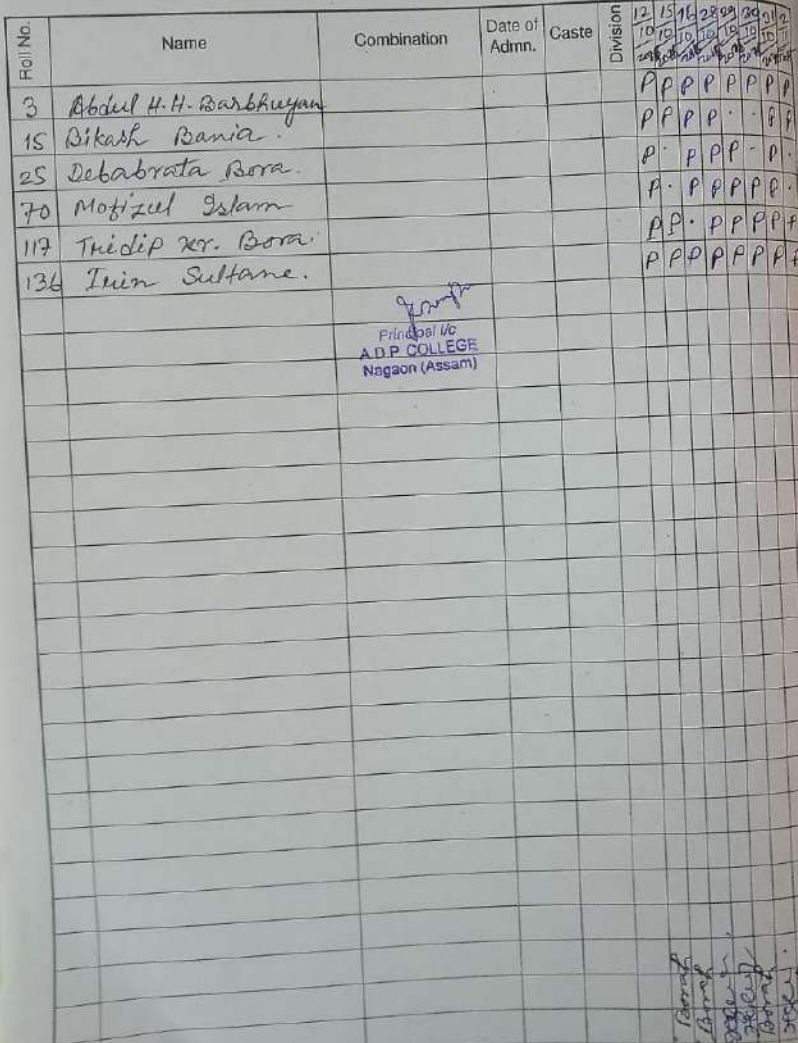 Roll No. Name Combination Date of Admn. Caste Division 12/10 15/10 16/10 28/10 29/10 30/10 31/10 2
3 Abdul H.H. Barbhuyan P P P P P P P P
15 Bikash Bania. P P P P · · P P
25 Debabrata Bora. P · P P P - P ·
70 Mofizul Islam P · P P P P P ·
117 Tridip kr. Bora. P P · P P P P P
136 Irin Sultane. P P P P P P P P
Principal i/c
A.D.P. COLLEGE
Nagaon (Assam)
Borah
Borah
Borah